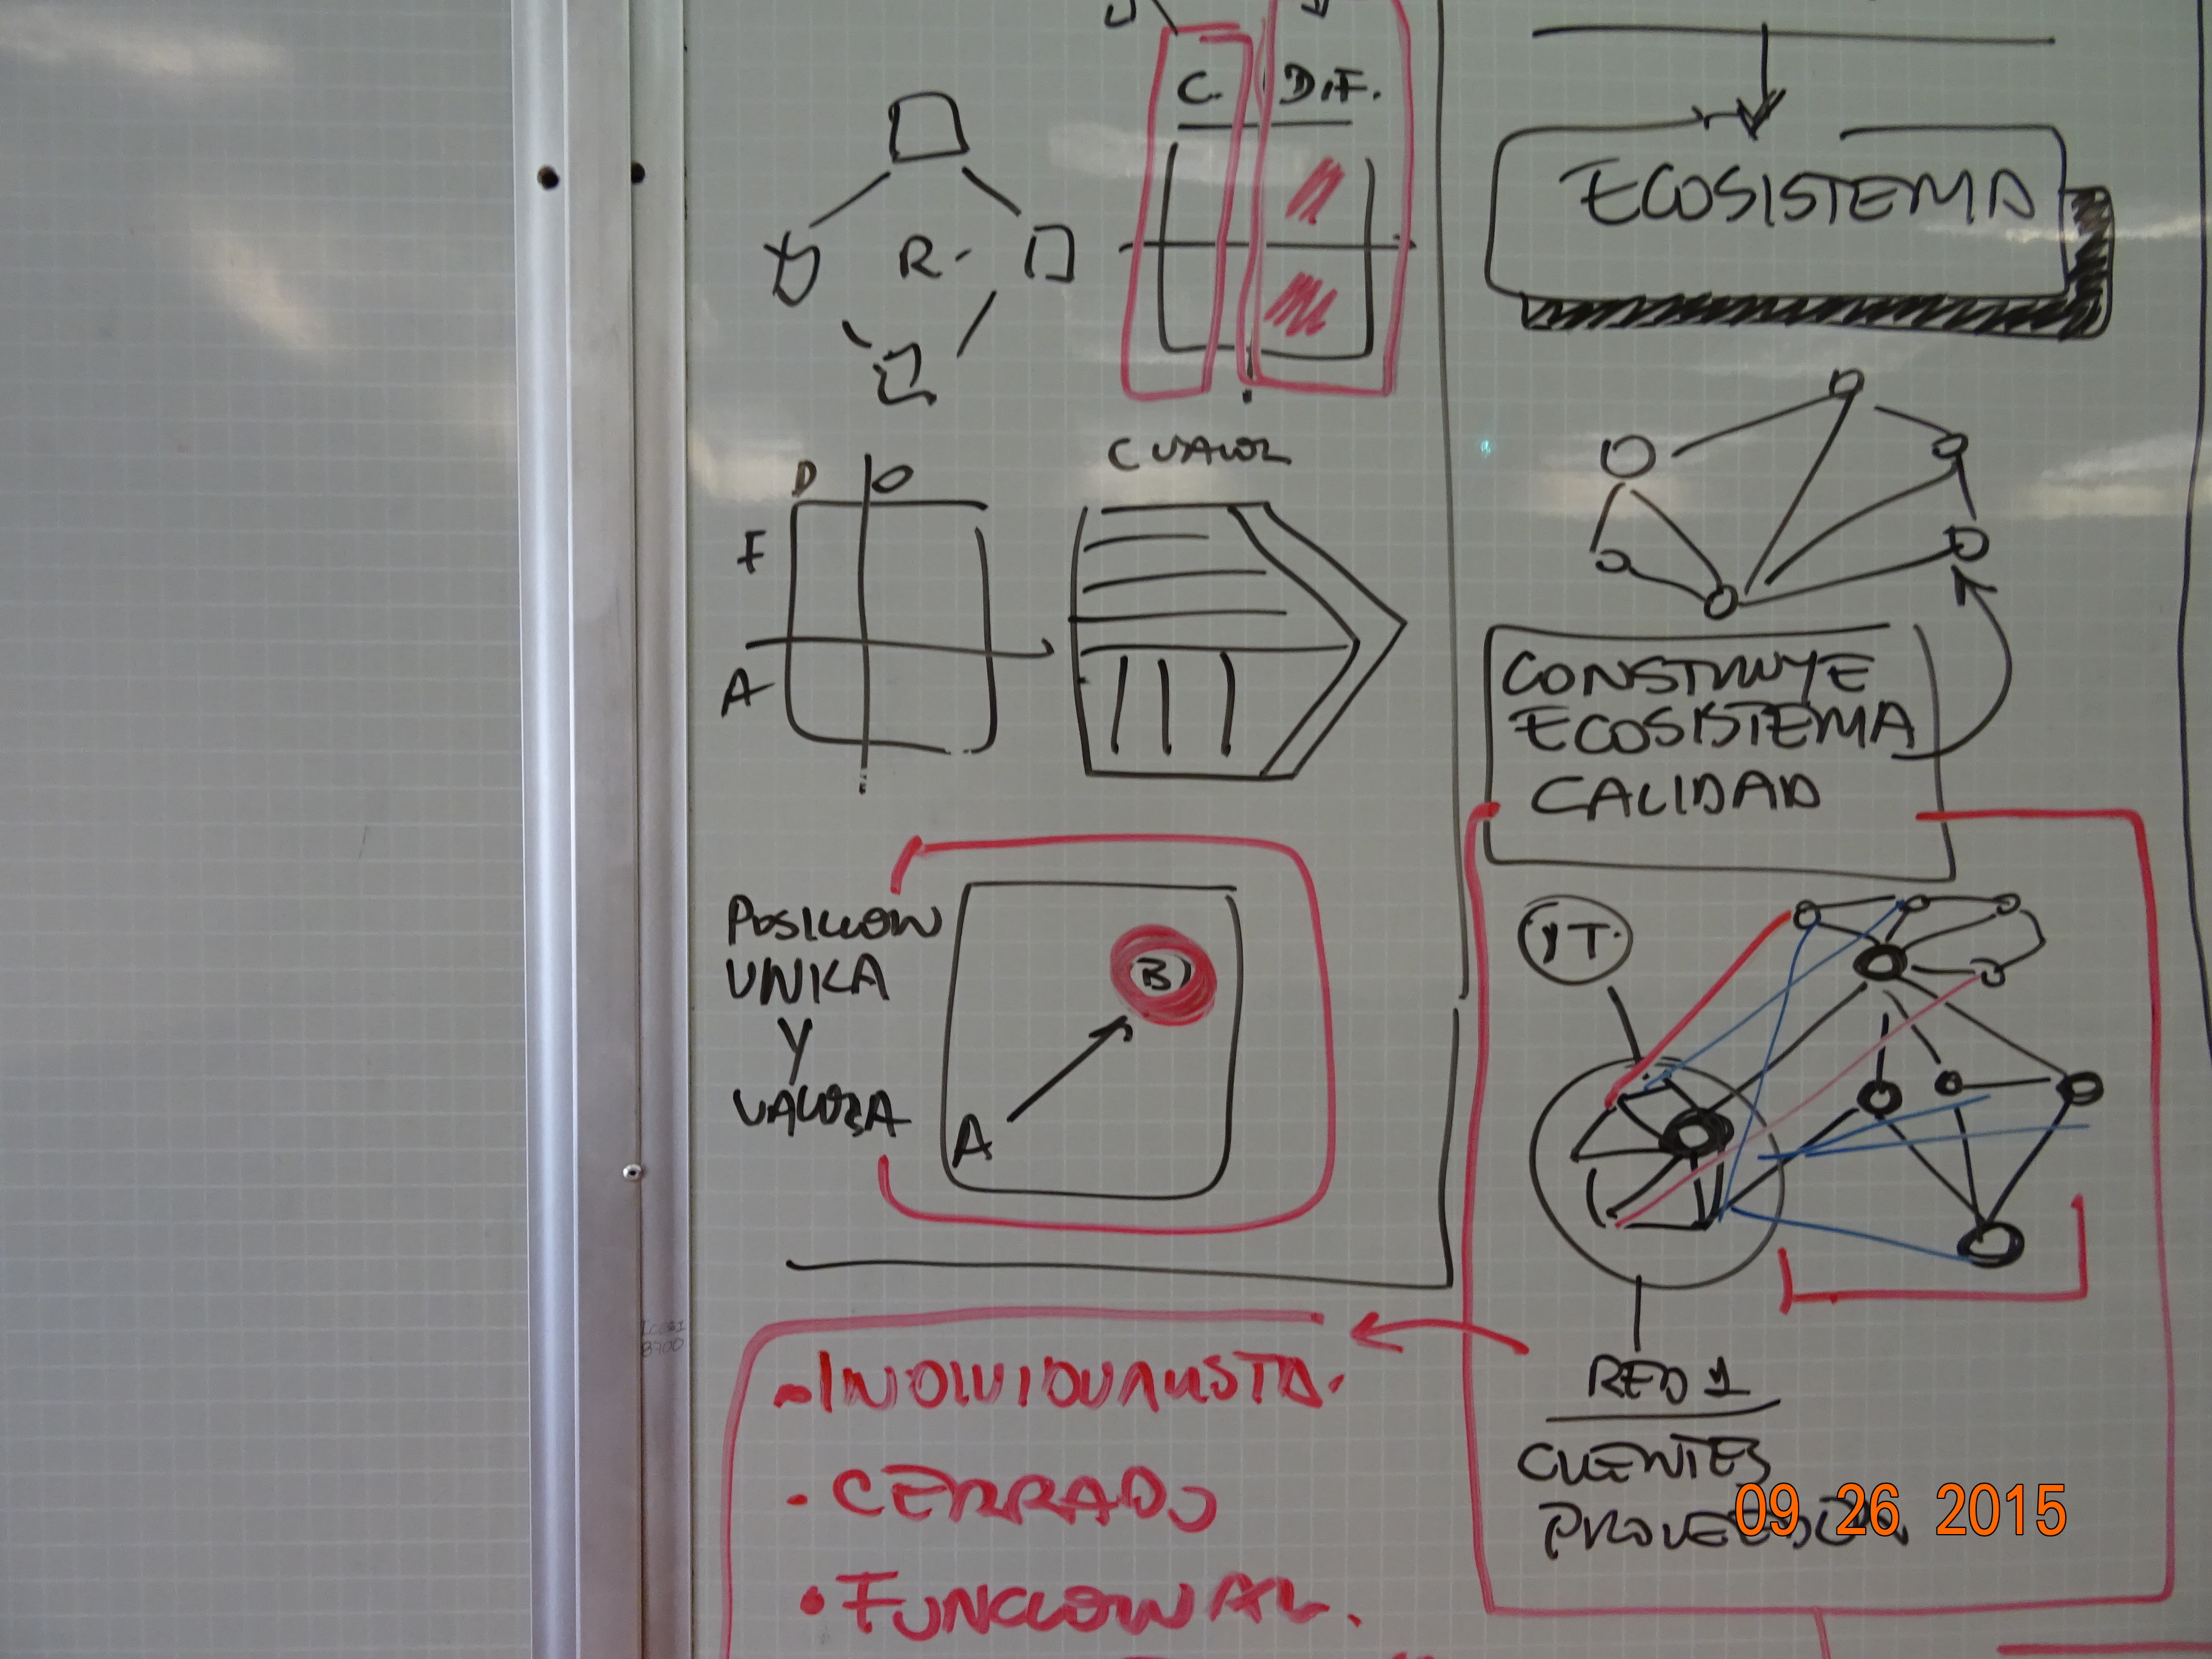 C. DIF.
R-
C VALOR
D O
F
A
POSICION
UNICA
Y
VALIOSA
B
A
- INDIVIDUALISTA.
• CERRADO
• FUNCIONAL.
ECOSISTEMA
CONSTRUYE
ECOSISTEMA
CALIDAD
YT.
RED 1
CLIENTES
PROVEEDOR
09 26 2015